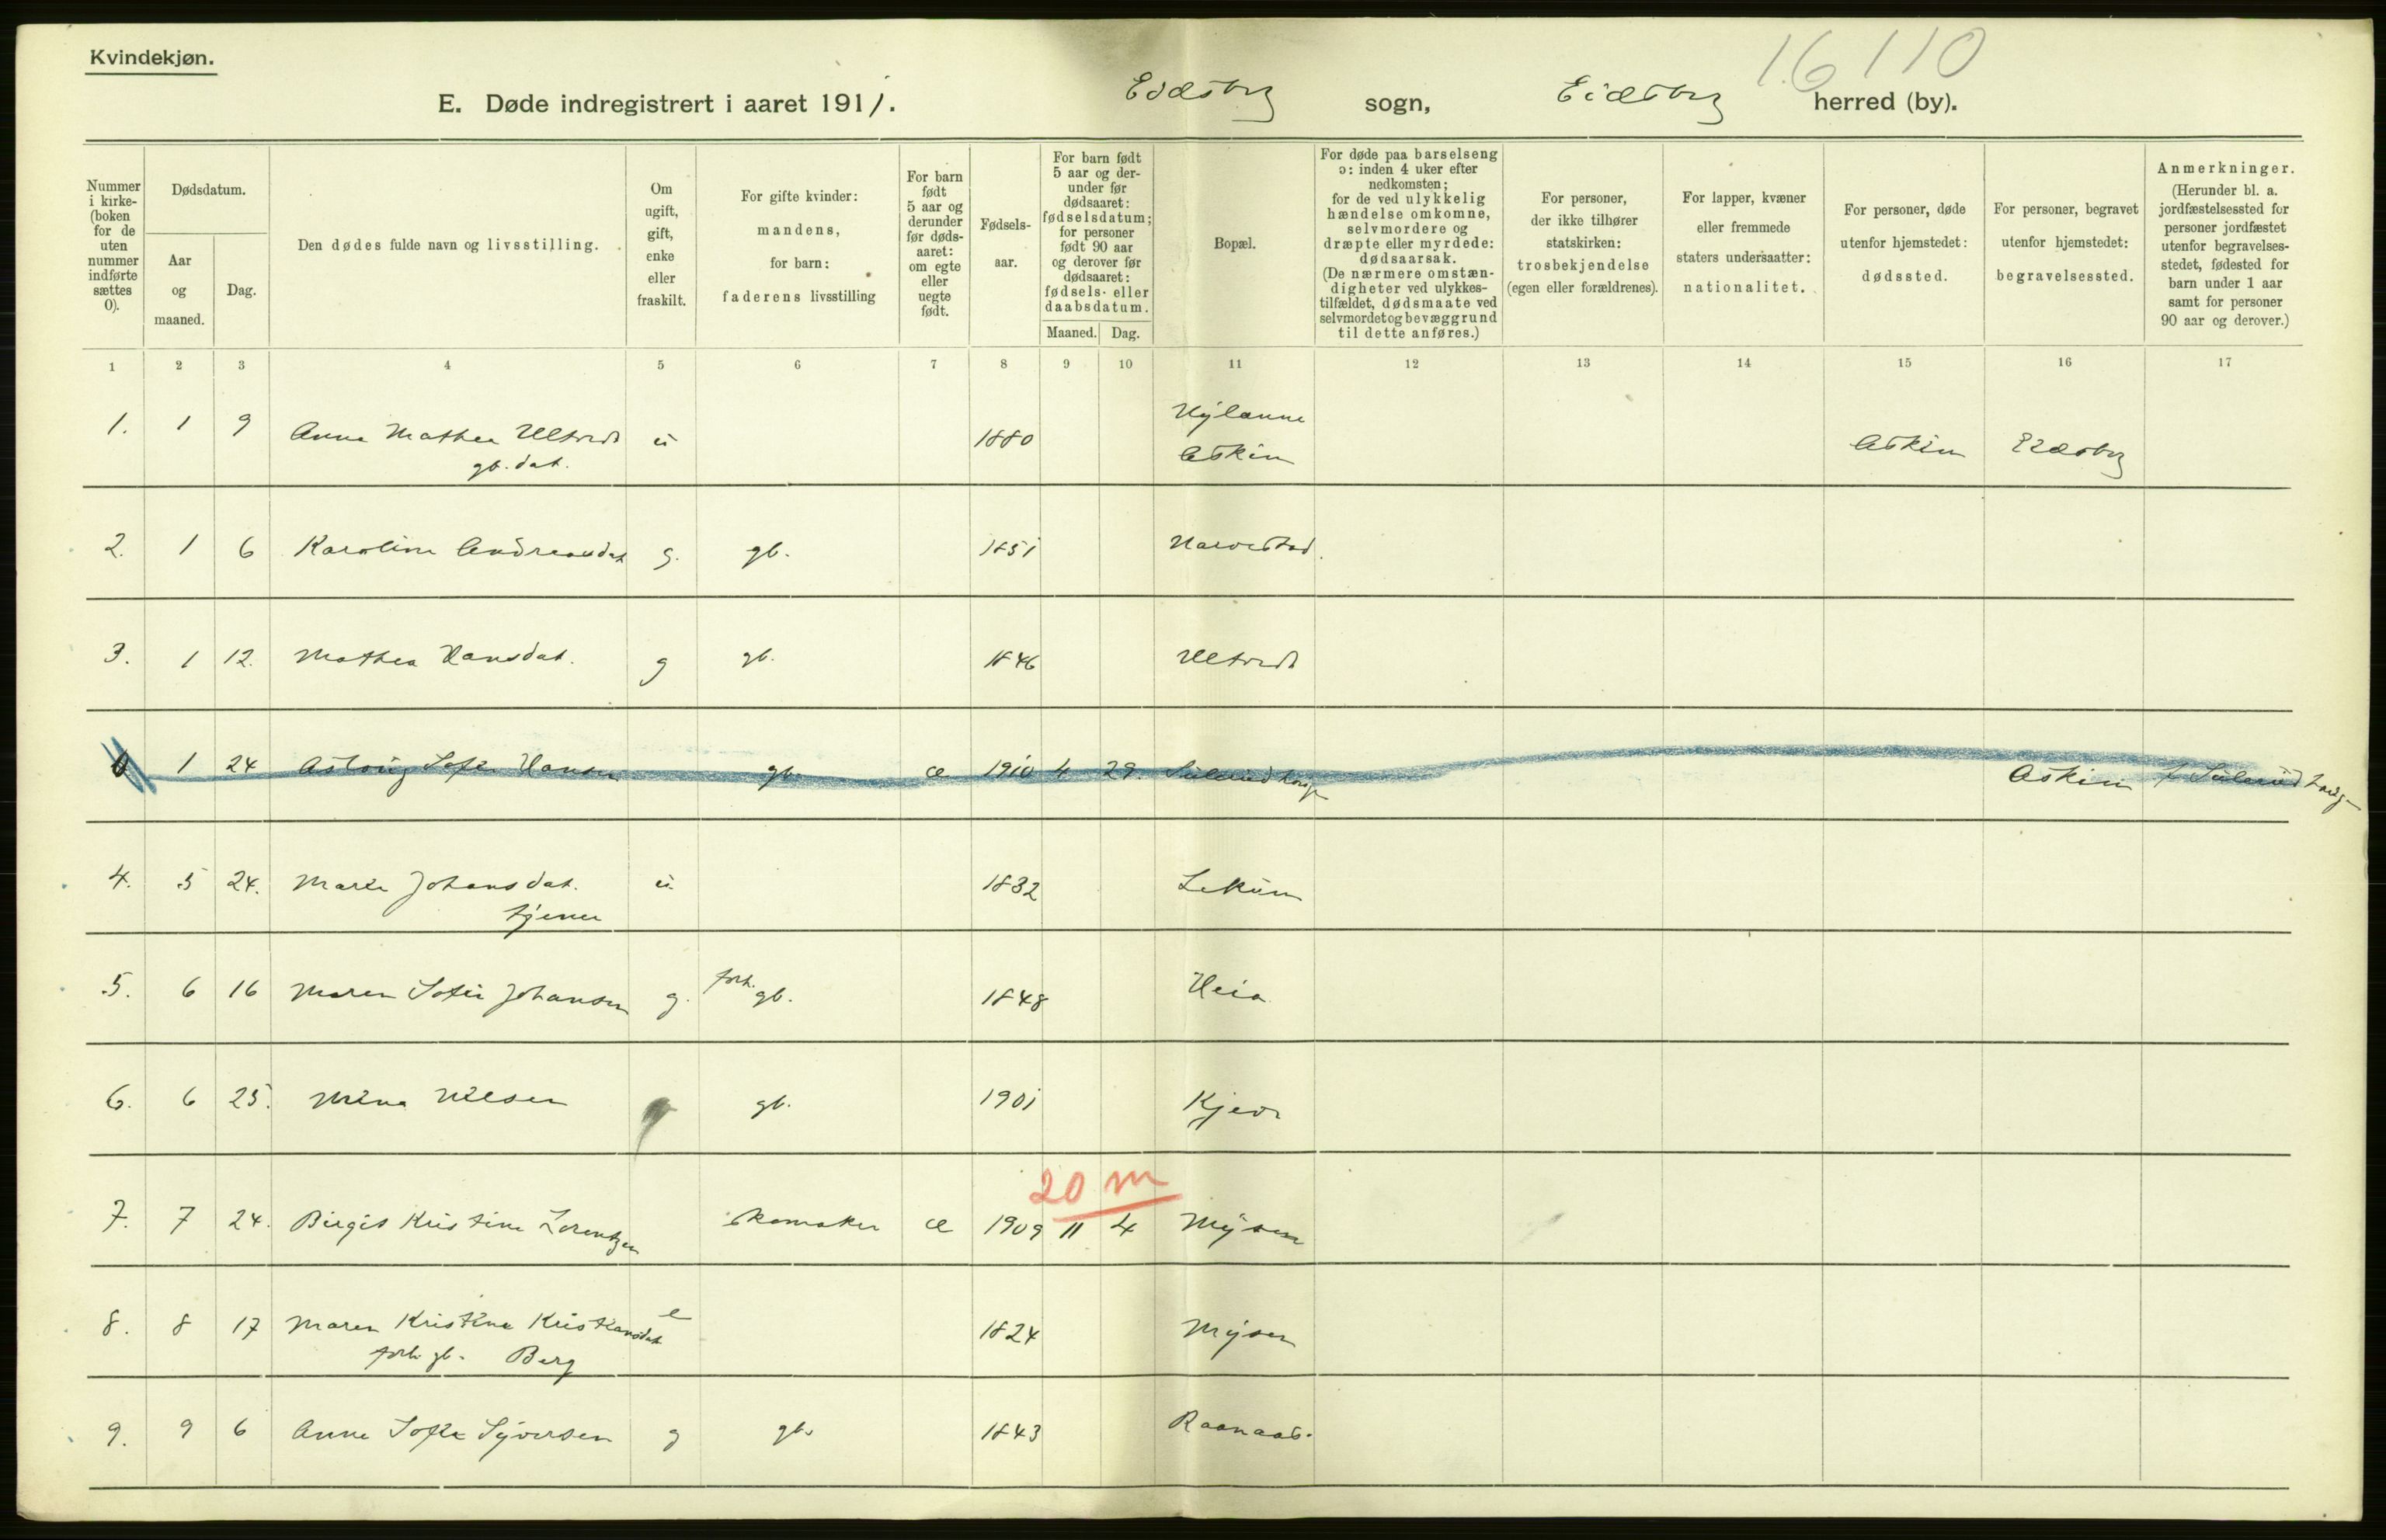 Kvindekjøn.
16 110
E. Døde indregistrert i aaret 1911. Eidsberg sogn, Eidsberg herred (by).
Nummer i kirke-(boken for de uten nummer indførte sættes 0).
Dødsdatum.
Aar og maaned.
Dag.
Den dødes fulde navn og livsstilling.
Om ugift, gift, enke eller fraskilt.
For gifte kvinder: mandens, for barn: faderens livsstilling
For barn født 5 aar og derunder før døds-aaret: om egte eller uegte født.
Fødsels-aar.
For barn født 5 aar og der-under før dødsaaret: fødselsdatum; for personer født 90 aar og derover før dødsaaret: fødsels- eller daabsdatum.
Maaned. Dag.
Bopæl.
For døde paa barselseng ɔ: inden 4 uker efter nedkomsten; for de ved ulykkelig hændelse omkomne, selvmordere og dræpte eller myrdede: dødsaarsak. (De nærmere omstæn-digheter ved ulykkes-tilfældet, dødsmaate ved selvmordet og bevæggrund til dette anføres.)
For personer, der ikke tilhører statskirken: trosbekjendelse (egen eller forældrenes).
For lapper, kvæner eller fremmede staters undersaatter: nationalitet.
For personer, døde utenfor hjemstedet: dødssted.
For personer, begravet utenfor hjemstedet: begravelsessted.
Anmerkninger. (Herunder bl. a. jordfæstelsessted for personer jordfæstet utenfor begravelses-stedet, fødested for barn under 1 aar samt for personer 90 aar og derover.)
1 2 3 4 5 6 7 8 9 10 11 12 13 14 15 16 17
1. 1 9 Anna Mathea Ultvedt u 1880 Askim Askim Eidsberg
gb. dat.
2. 1 6 Karoline Andreasdat g. gb. 1851
3. 1 12. Mathea Hansdat. g gb. 1846 Ultvedt
0 1 24 Astrig Sofie Hansen gb. æ 1910 4 29. Sulerud haug Askim f Sulerud haug
4. 5 24. Marie Johansdat. u. 1832 Lekum
tjener
5. 6 16 Maren Sofie Johansen g. forh. gb. 1848 Heia
6. 6 25. Mina Nilsen gb. 1901
20 m
7. 7 24. Birgit Kristine Lorentzen skomaker æ 1909 11 4 Mysen
8. 8 17 Maren Kristine Kristiansdat e 1824 Mysen
forh. gb. Berg
9. 9 6 Anne Sofie Syversen g gb. 1843 Raanaas.